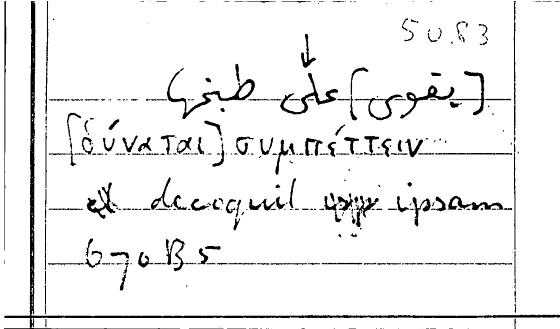 50.83
[يقوى] على طبخها
[δύναται] συμπέττειν
et decoquit ipsam
670 B 5